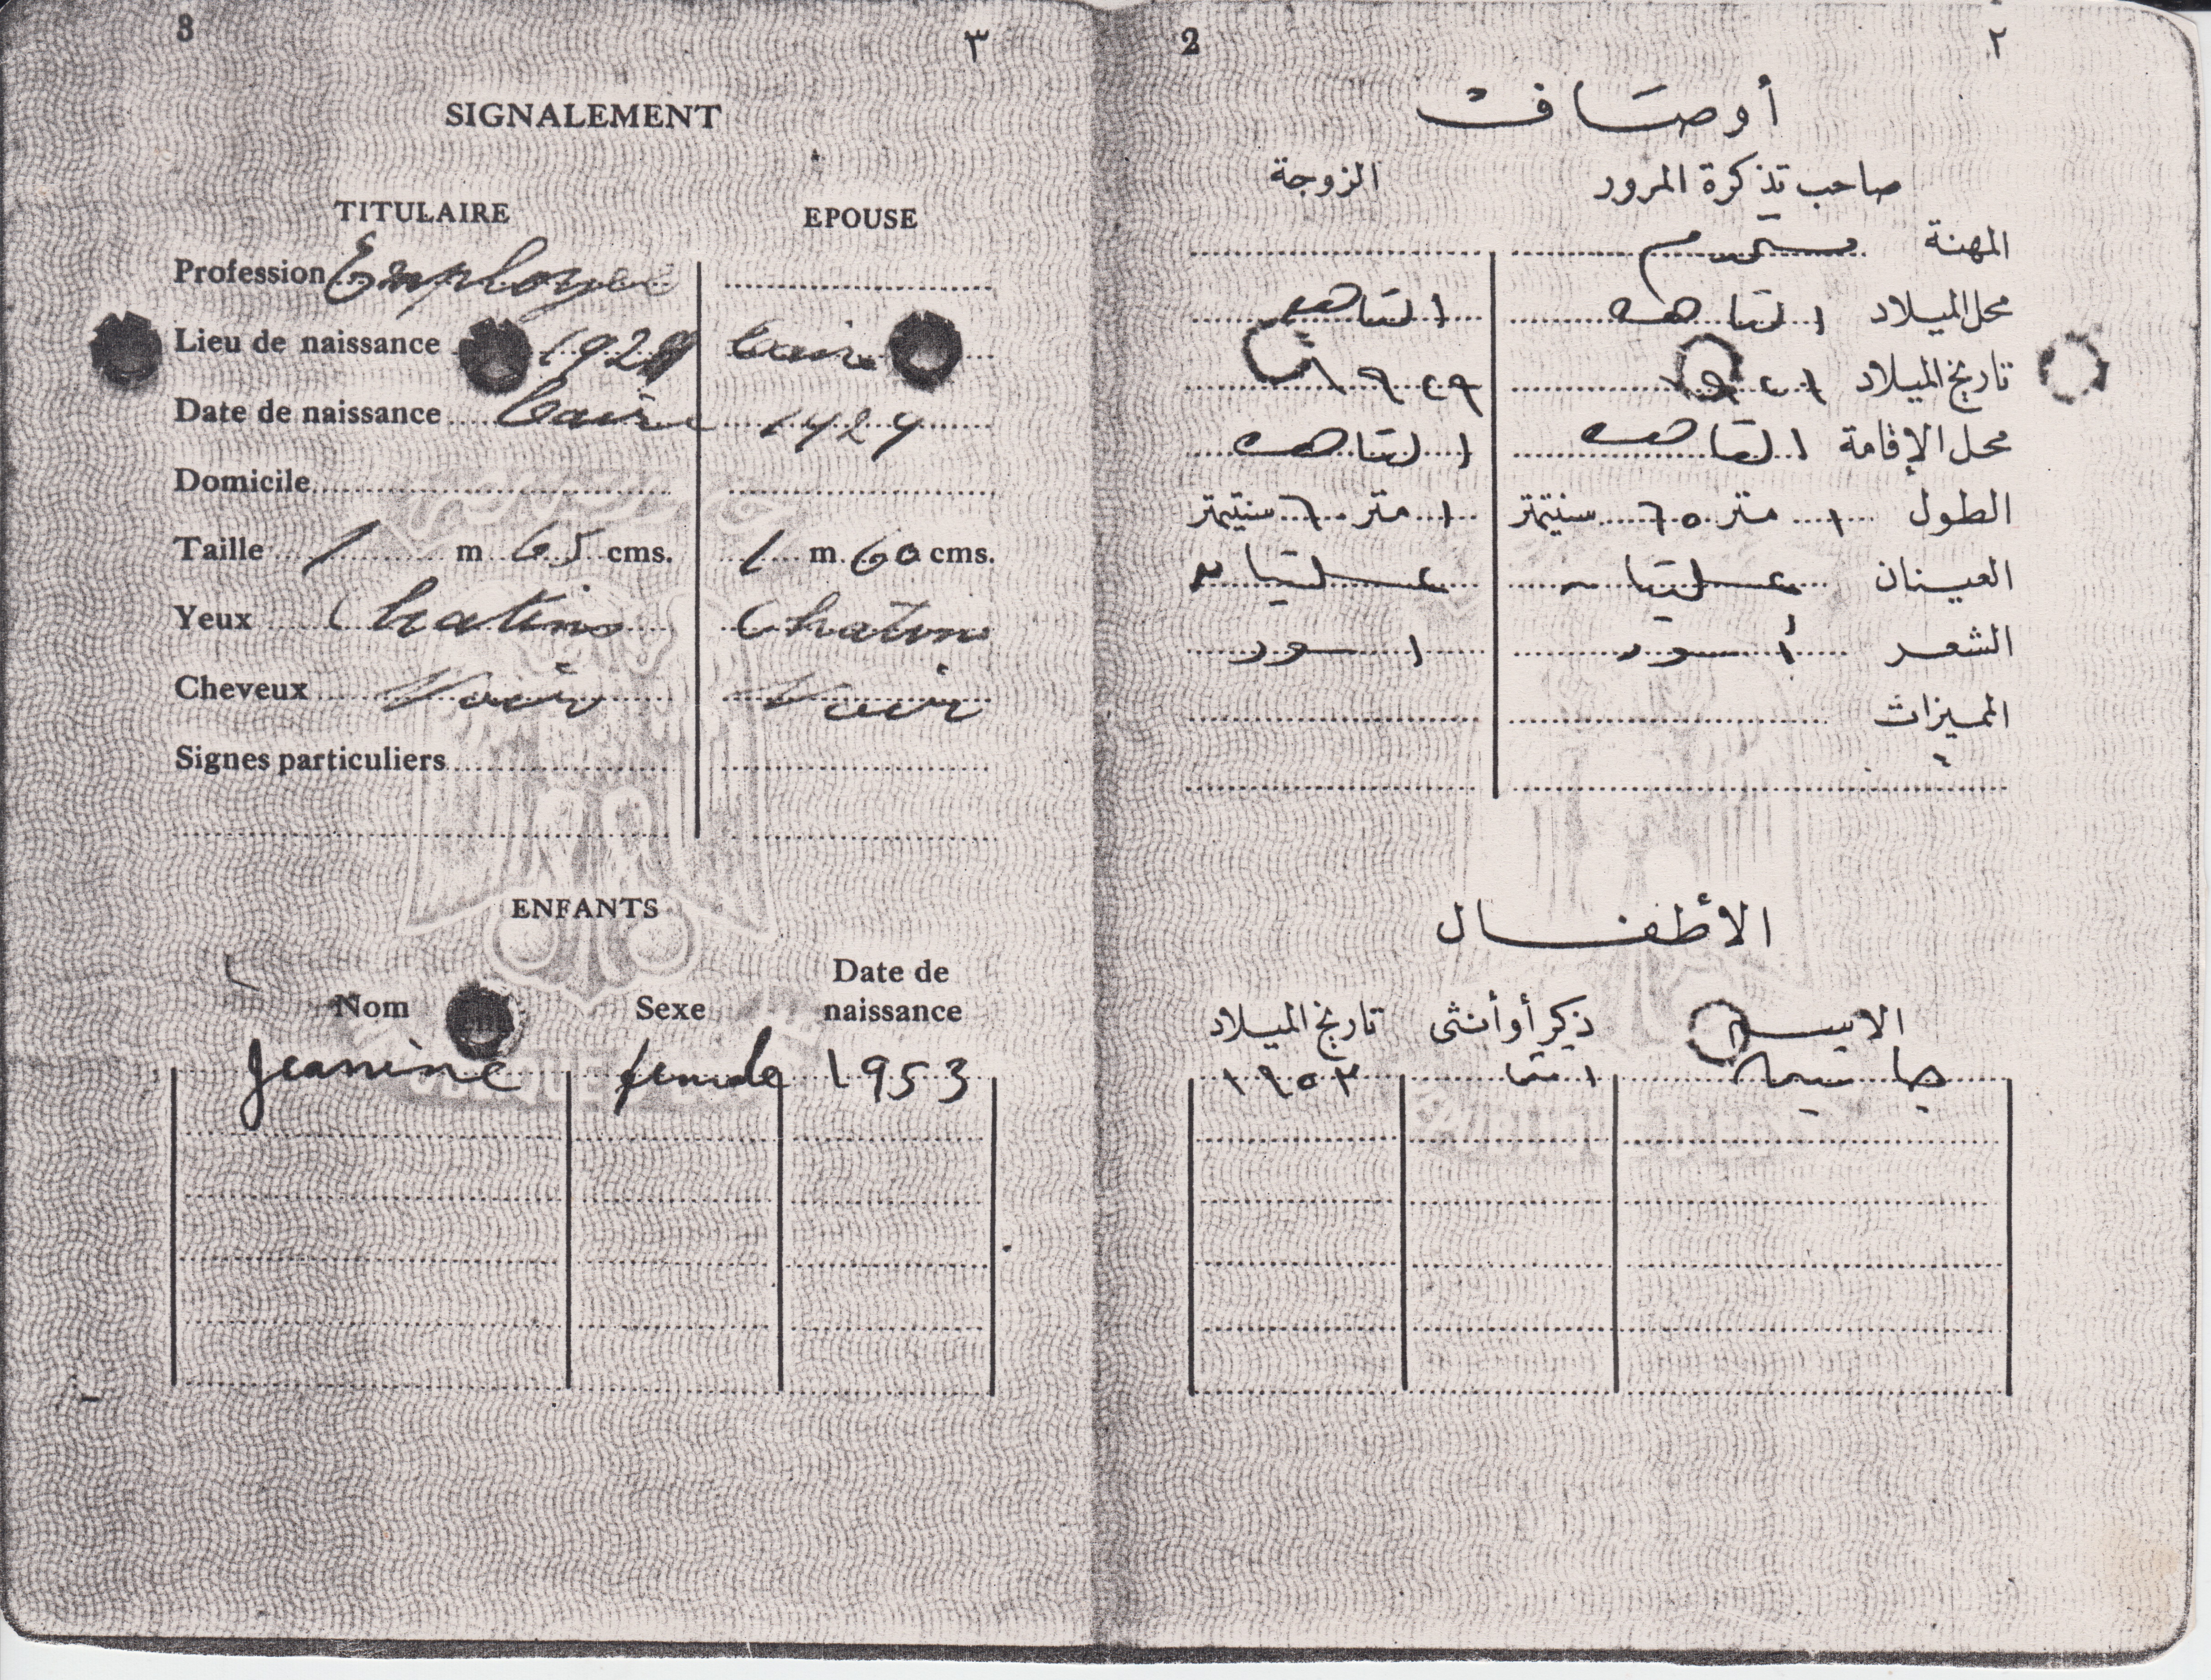 3 ٣
SIGNALEMENT
TITULAIRE EPOUSE
Profession Employé
Lieu de naissance 192 Caire
Date de naissance Caire 1929
Domicile
Taille 1 m 65 cms. 1 m 60 cms.
Yeux Chatins Chatins
Cheveux Noir Noir
Signes particuliers
ENFANTS
Nom Sexe Date de naissance
Jeanine female 1953
2 ٢
أوصاف
صاحب تذكرة المرور الزوجة
المهنة مستخدم
محل الميلاد القاهرة القاهرة
تاريخ الميلاد ١٩٢٩
محل الإقامة القاهرة القاهرة
الطول ١ متر ٦٥ سنتيمتر ١ متر ٦٠ سنتيمتر
العينان عسليتان عسليتان
الشعر أسود اسود
المميزات
الأطفال
الاسم ذكر أو أنثى تاريخ الميلاد
جانين انثى ١٩٥٣